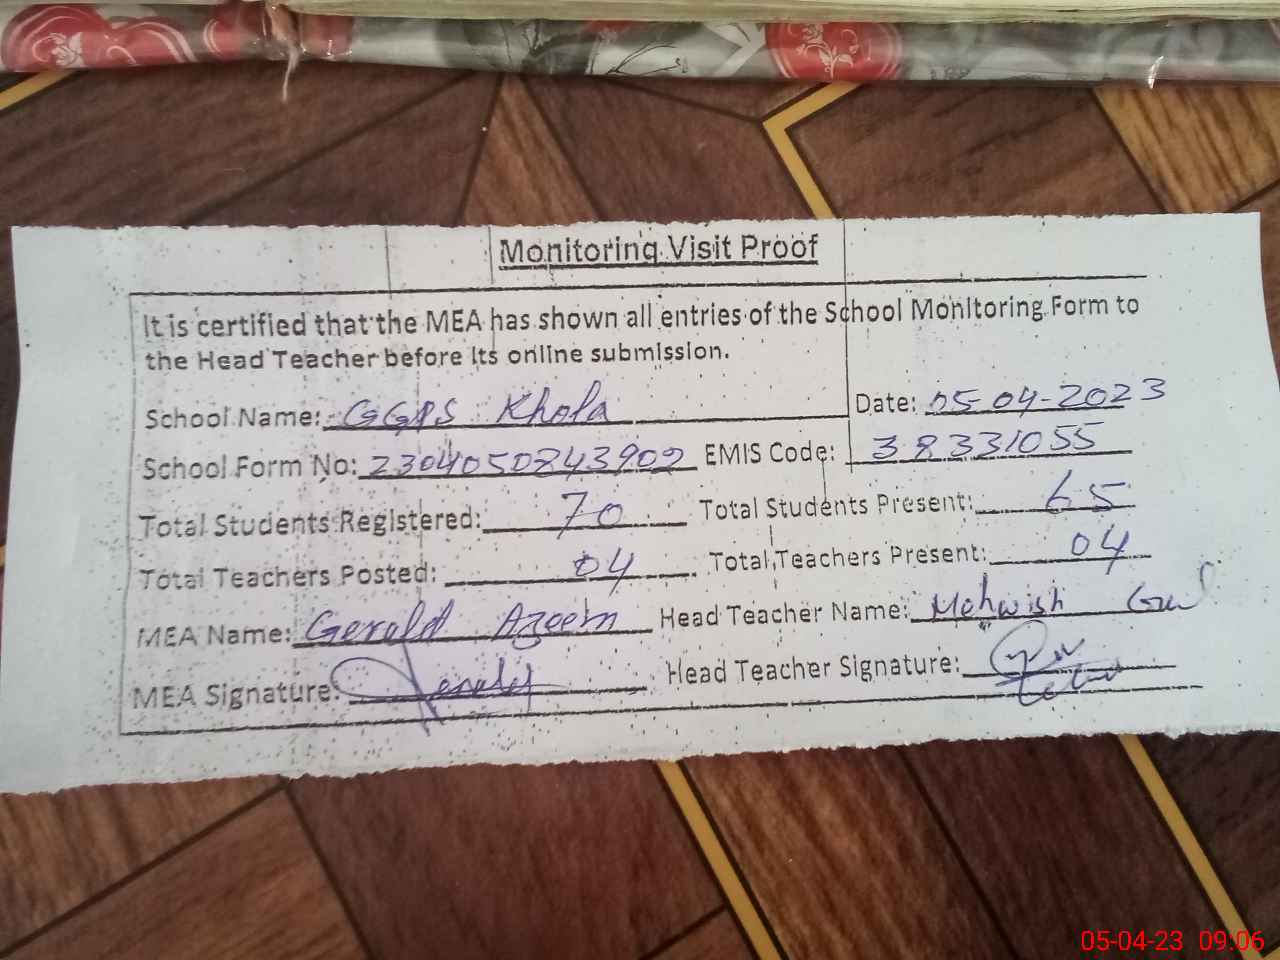 Monitoring Visit Proof
It is certified that the MEA has shown all entries of the School Monitoring Form to
the Head Teacher before its online submission.
School Name: GGPS Khola Date: 05-04-2023
School Form No: 2304050843902 EMIS Code: 38331055
Total Students Registered: 70 Total Students Present: 65
Total Teachers Posted: 04 Total Teachers Present: 04
MEA Name: Gerald Azeem Head Teacher Name: Mehwish Gul
MEA Signature: Head Teacher Signature:
05-04-23 09:06